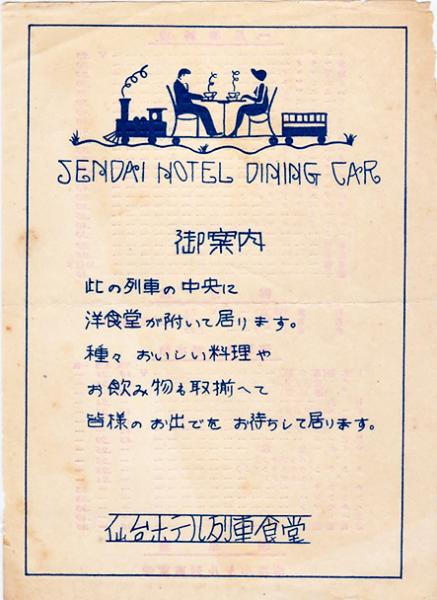 SENDAI HOTEL DINING CAR
御案内
此の列車の中央に
洋食堂が附いて居ります。
種々 おいしい料理や
お飲み物も取揃へて
皆様の お出でを お待ちして居ります。
仙台ホテル列車食堂